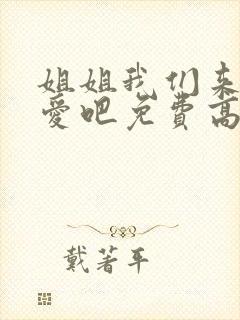 姐姐我们来
爱吧免费高
戴著平